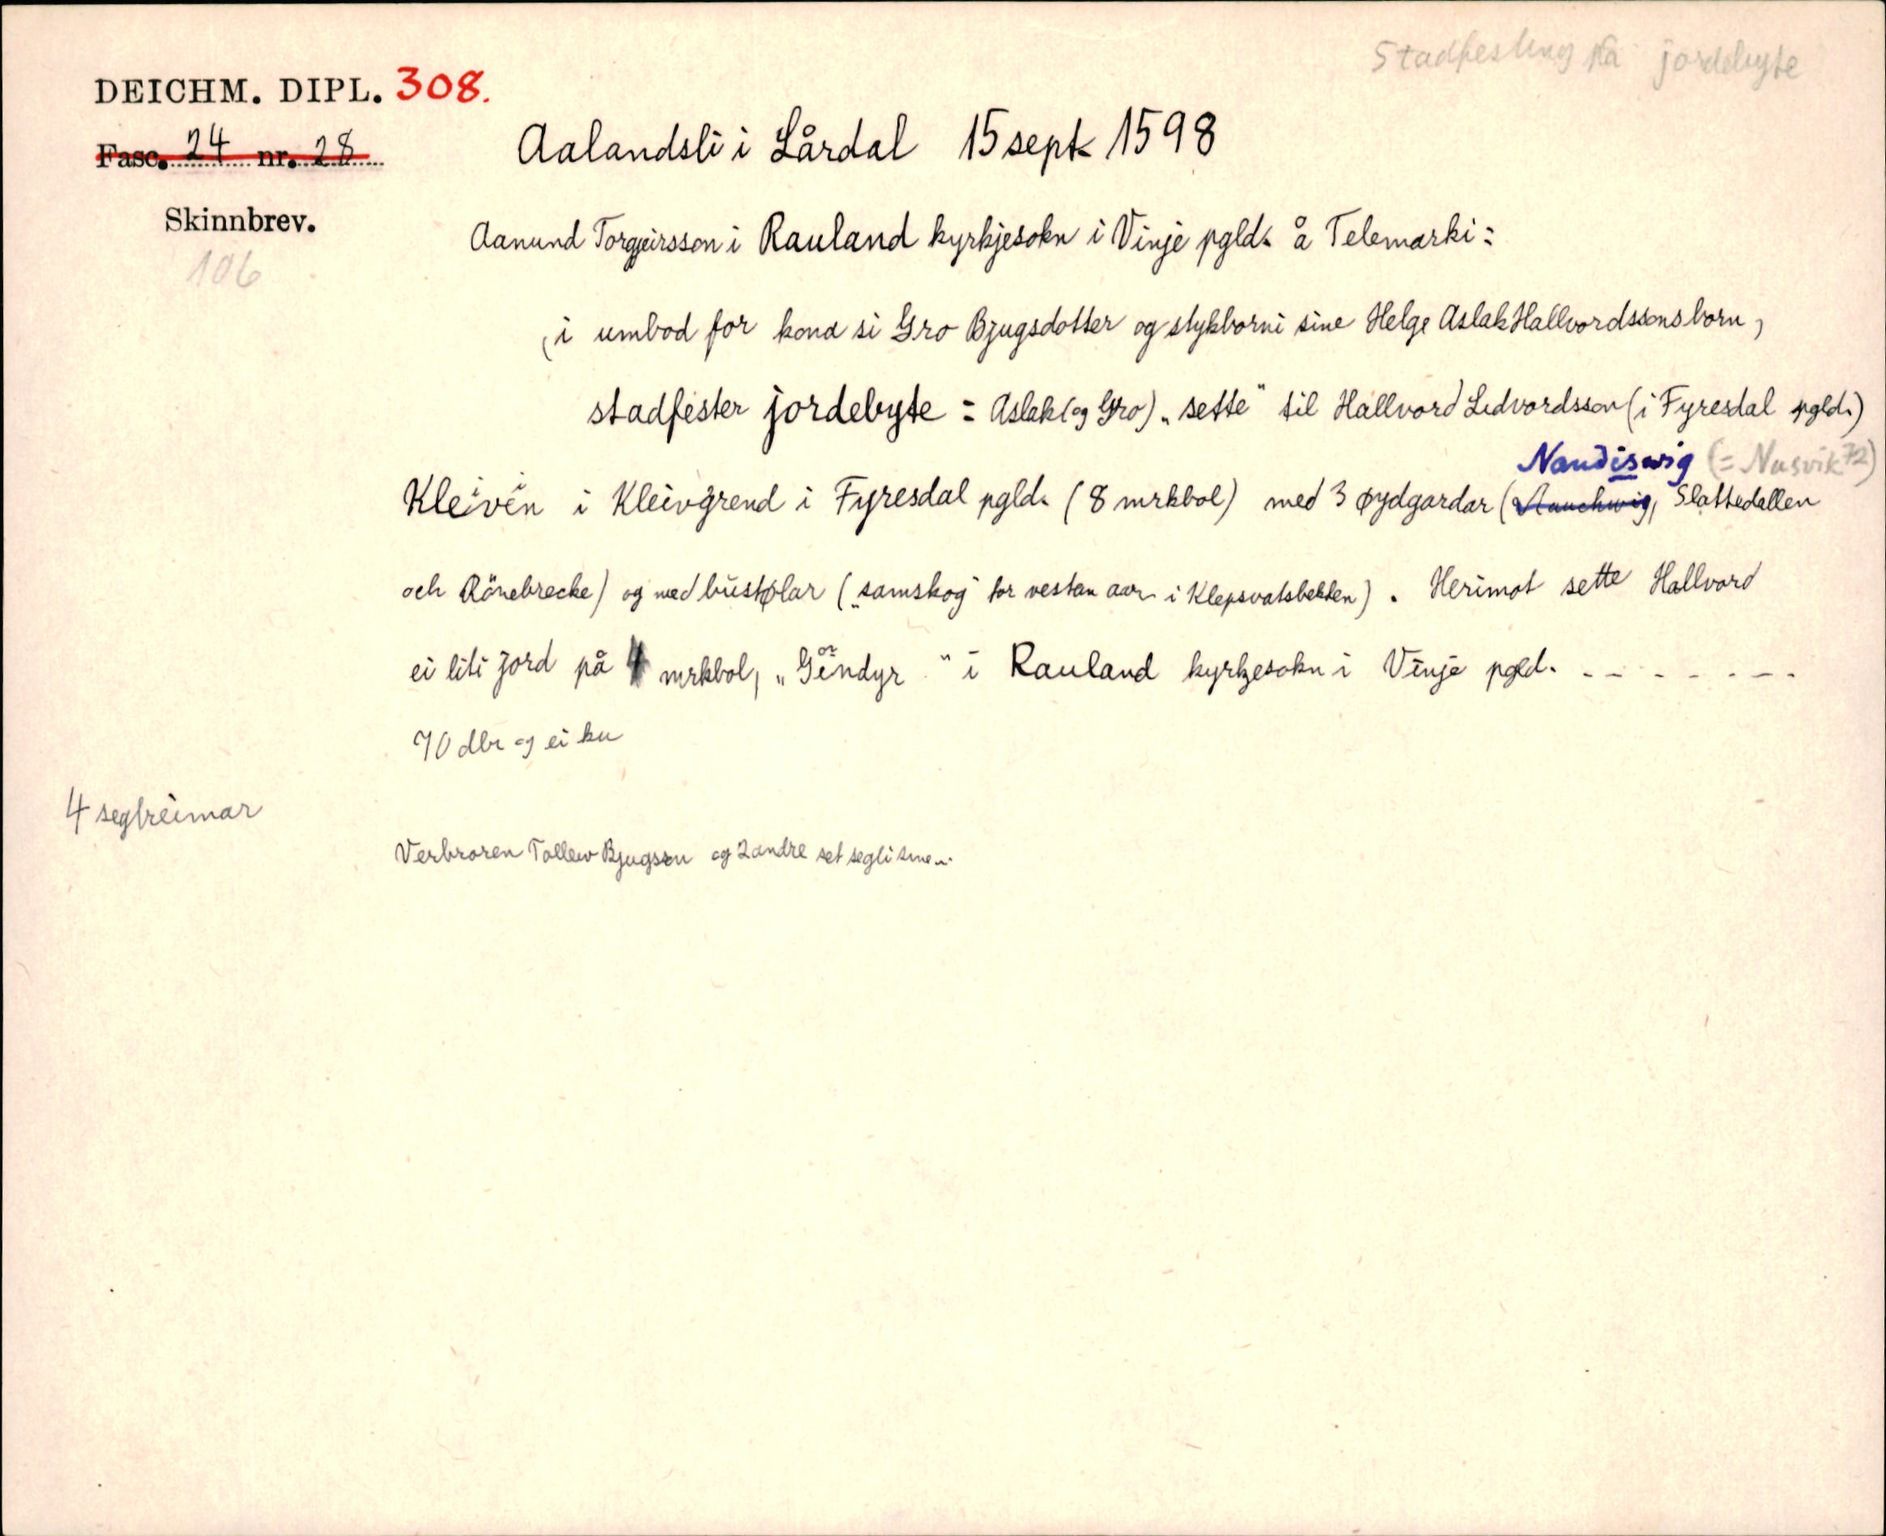 Stadfesting på jordebyte
DEICHM. DIPL. 308.
Fasc. 24 nr. 28
Skinnbrev.
106
Aalandsli i Lårdal 15 sept 1598
Aanund Torgjeirsson i Rauland kyrkjesokn i Vinje pgld. å Telemarki:
(i umbod for kona si Gro Bjugsdotter og stykborni sine Helge Aslak Hallvordssons born,
stadfester jordebyte: Aslak (og Gro) „sette" til Hallvord Ledvordsson (i Fyresdal pgld.)
Naudiswig (= Nusvik 72)
Kleivèn i Kleivgrend i Fyresdal pgld. (8 mrkbol) med 3 øydgardar (Nauchwig, Slattedallen
och Rönebrecke) og med bustølar („samskog" for vestan aar i Klepsvatsbekken). Herimot sette Hallvord
ei liti jord på 4 mrkbol, „Gindyr" i Rauland kyrkjesokn i Vinje pgld. - - - - - - -
70 dlr og ei ku
4 seglreimar
Verbroren Tollew Bjugson og 2 andre set segli sine.